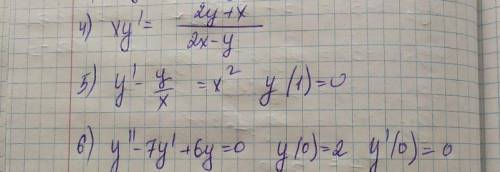 4) xy' = (2y+x)/(2x-y)
5) y' - y/x = x² y(1)=0
6) y'' - 7y' + 6y = 0 y(0) = 2 y'(0) = 0